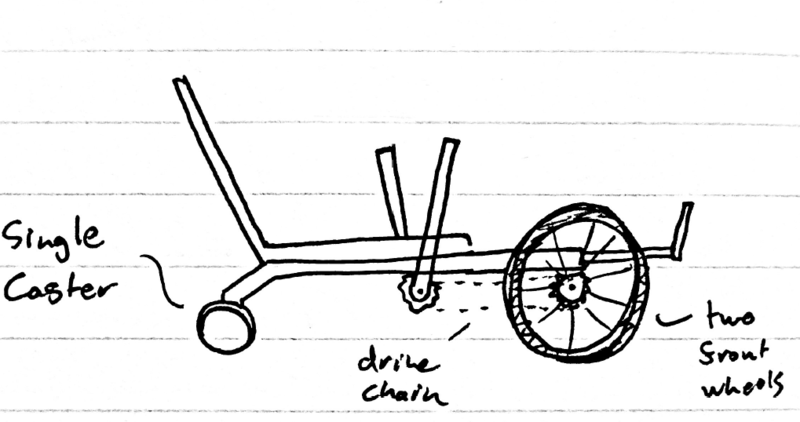 Single
Caster
drive
chain
two
front
wheels